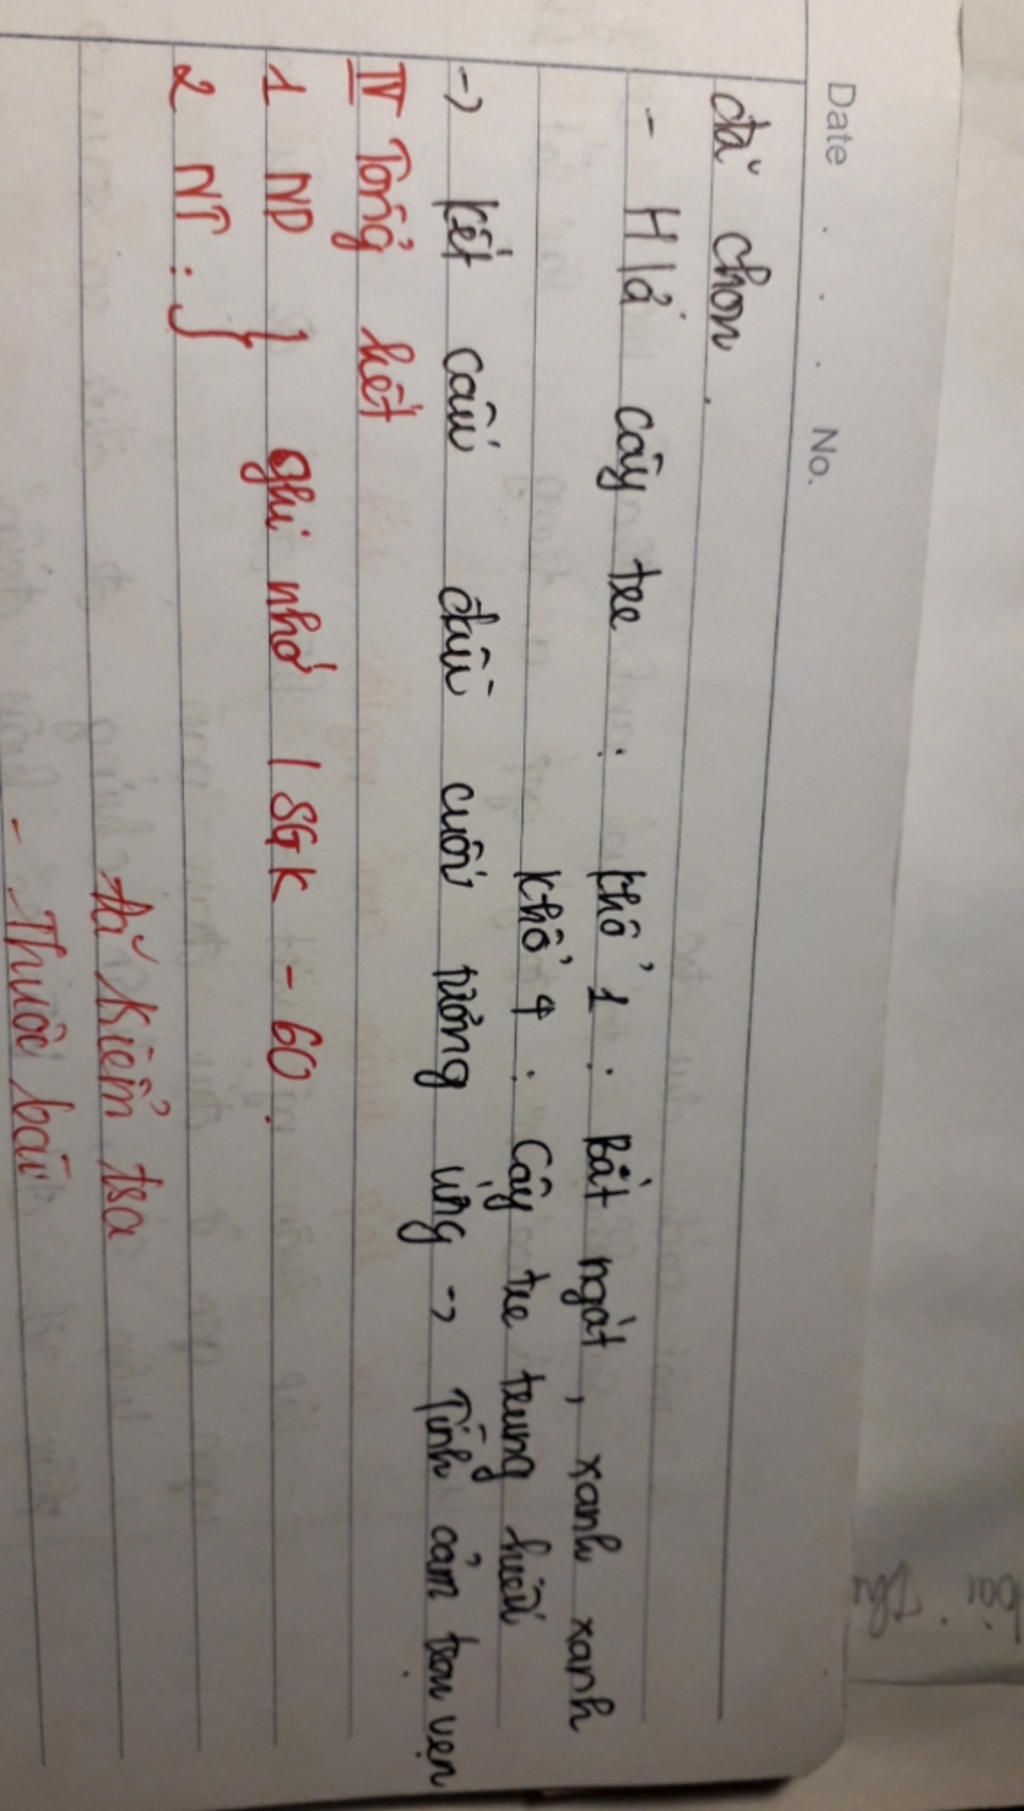 Date . . . No.
đã chọn.
- H/ả cây tre : khổ 1 : Bát ngát, xanh xanh
khổ 4 : Cây tre trung hiếu
-> kết cấu đầu cuối tương ứng -> Tình cảm trọn vẹn
IV Tổng kết
1 ND } ghi nhớ / SGK - 60.
2 NT : }
đã kiểm tra
- Thuộc bài